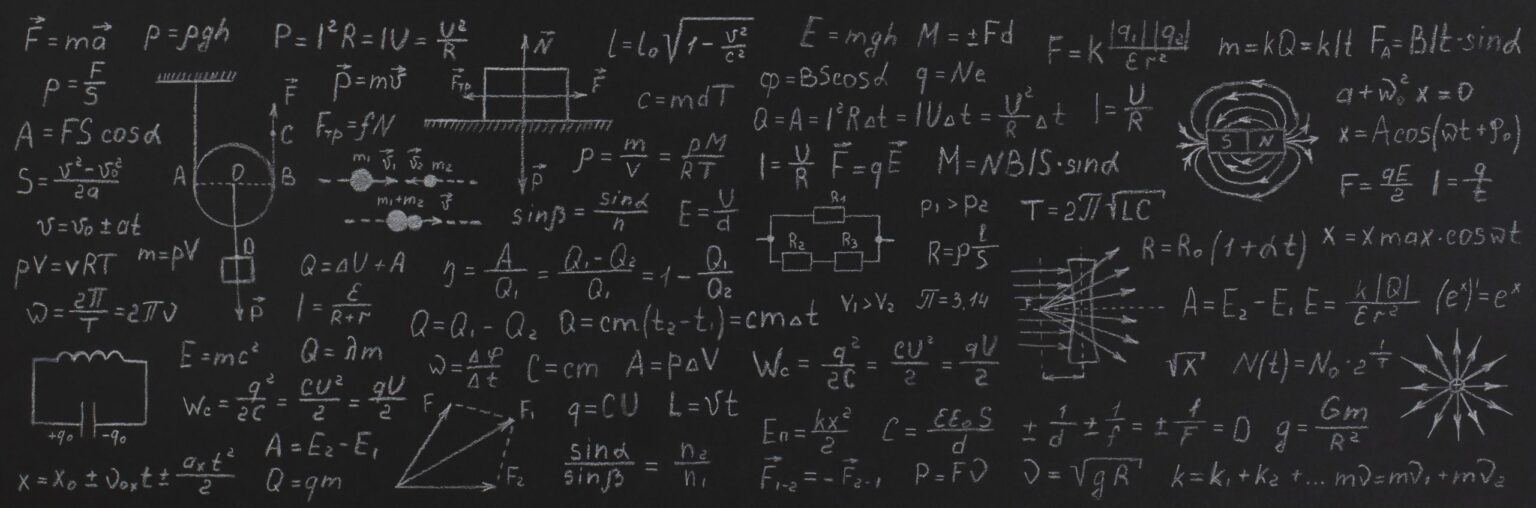 F⃗ = ma⃗
p = ρgh
P = I²R = IU = U²/R
N⃗
l = l₀√(1 - v²/c²)
E = mgh
M = ±Fd
F = k |q₁||q₂| / εr²
m = kQ = kIt
F_A = BIt·sinα
p = F/S
F⃗
p⃗ = mv⃗
F⃗тр
F⃗
c = mdT
φ = BScosα
q = Ne
a + w₀² x = 0
A = FS cosα
C
Fтр = fN
Q = A = I²RΔt = IUΔt = U²/R Δt
I = U/R
S N
x = Acos(wt + φ₀)
S = (v² - v₀²)/2a
A O B
m₁ v⃗₁ v⃗₂ m₂
P⃗
ρ = m/V = pM/RT
I = U/R
F⃗ = qE⃗
M = NBIS·sinα
F = qE/2
I = q/t
v = v₀ ± at
m₁+m₂ v⃗
sinβ = sinα/n
E = U/d
R₁
R₂ R₃
p₁ > p₂
T = 2π√LC
pV = νRT
m = ρV
D
Q = ΔU + A
η = A/Q₁ = (Q₁ - Q₂)/Q₁ = 1 - Q₁/Q₂
R = ρ l/S
R = R₀(1 + αt)
x = x max·cos wt
w = 2π/T = 2πν
P⃗
I = ε/(R+r)
Q = Q₁ - Q₂
Q = cm(t₂ - t₁) = cmΔt
V₁ > V₂
π = 3,14
F
A = E₂ - E₁
E = k|Q|/εr²
(eˣ)' = eˣ
E = mc²
Q = λm
w = Δφ/Δt
C = cm
A = pΔV
Wc = q²/2C = CU²/2 = qU/2
√x
N(t) = N₀·2^(t/T)
+q₀ -q₀
Wc = q²/2C = CU²/2 = qU/2
F F₁
F₂
q = CU
L = vt
Eп = kx²/2
C = εε₀S/d
± 1/d ± 1/f = ± 1/F = D
g = Gm/R²
x = x₀ ± v₀ₓt ± aₓt²/2
A = E₂ - E₁
Q = qm
sinα/sinβ = n₂/n₁
F⃗₁₋₂ = -F⃗₂₋₁
P = Fv
v = √gR
k = k₁ + k₂ + ...
mv = mv₁ + mv₂